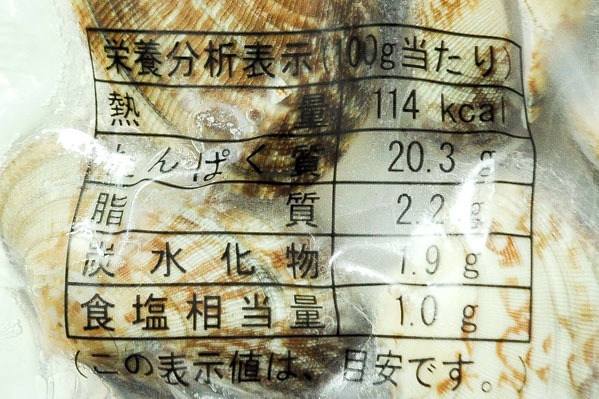 栄養分析表示(100g当たり)
熱量 114 kcal
たんぱく質 20.3 g
脂質 2.2 g
炭水化物 1.9 g
食塩相当量 1.0 g
(この表示値は、目安です。)